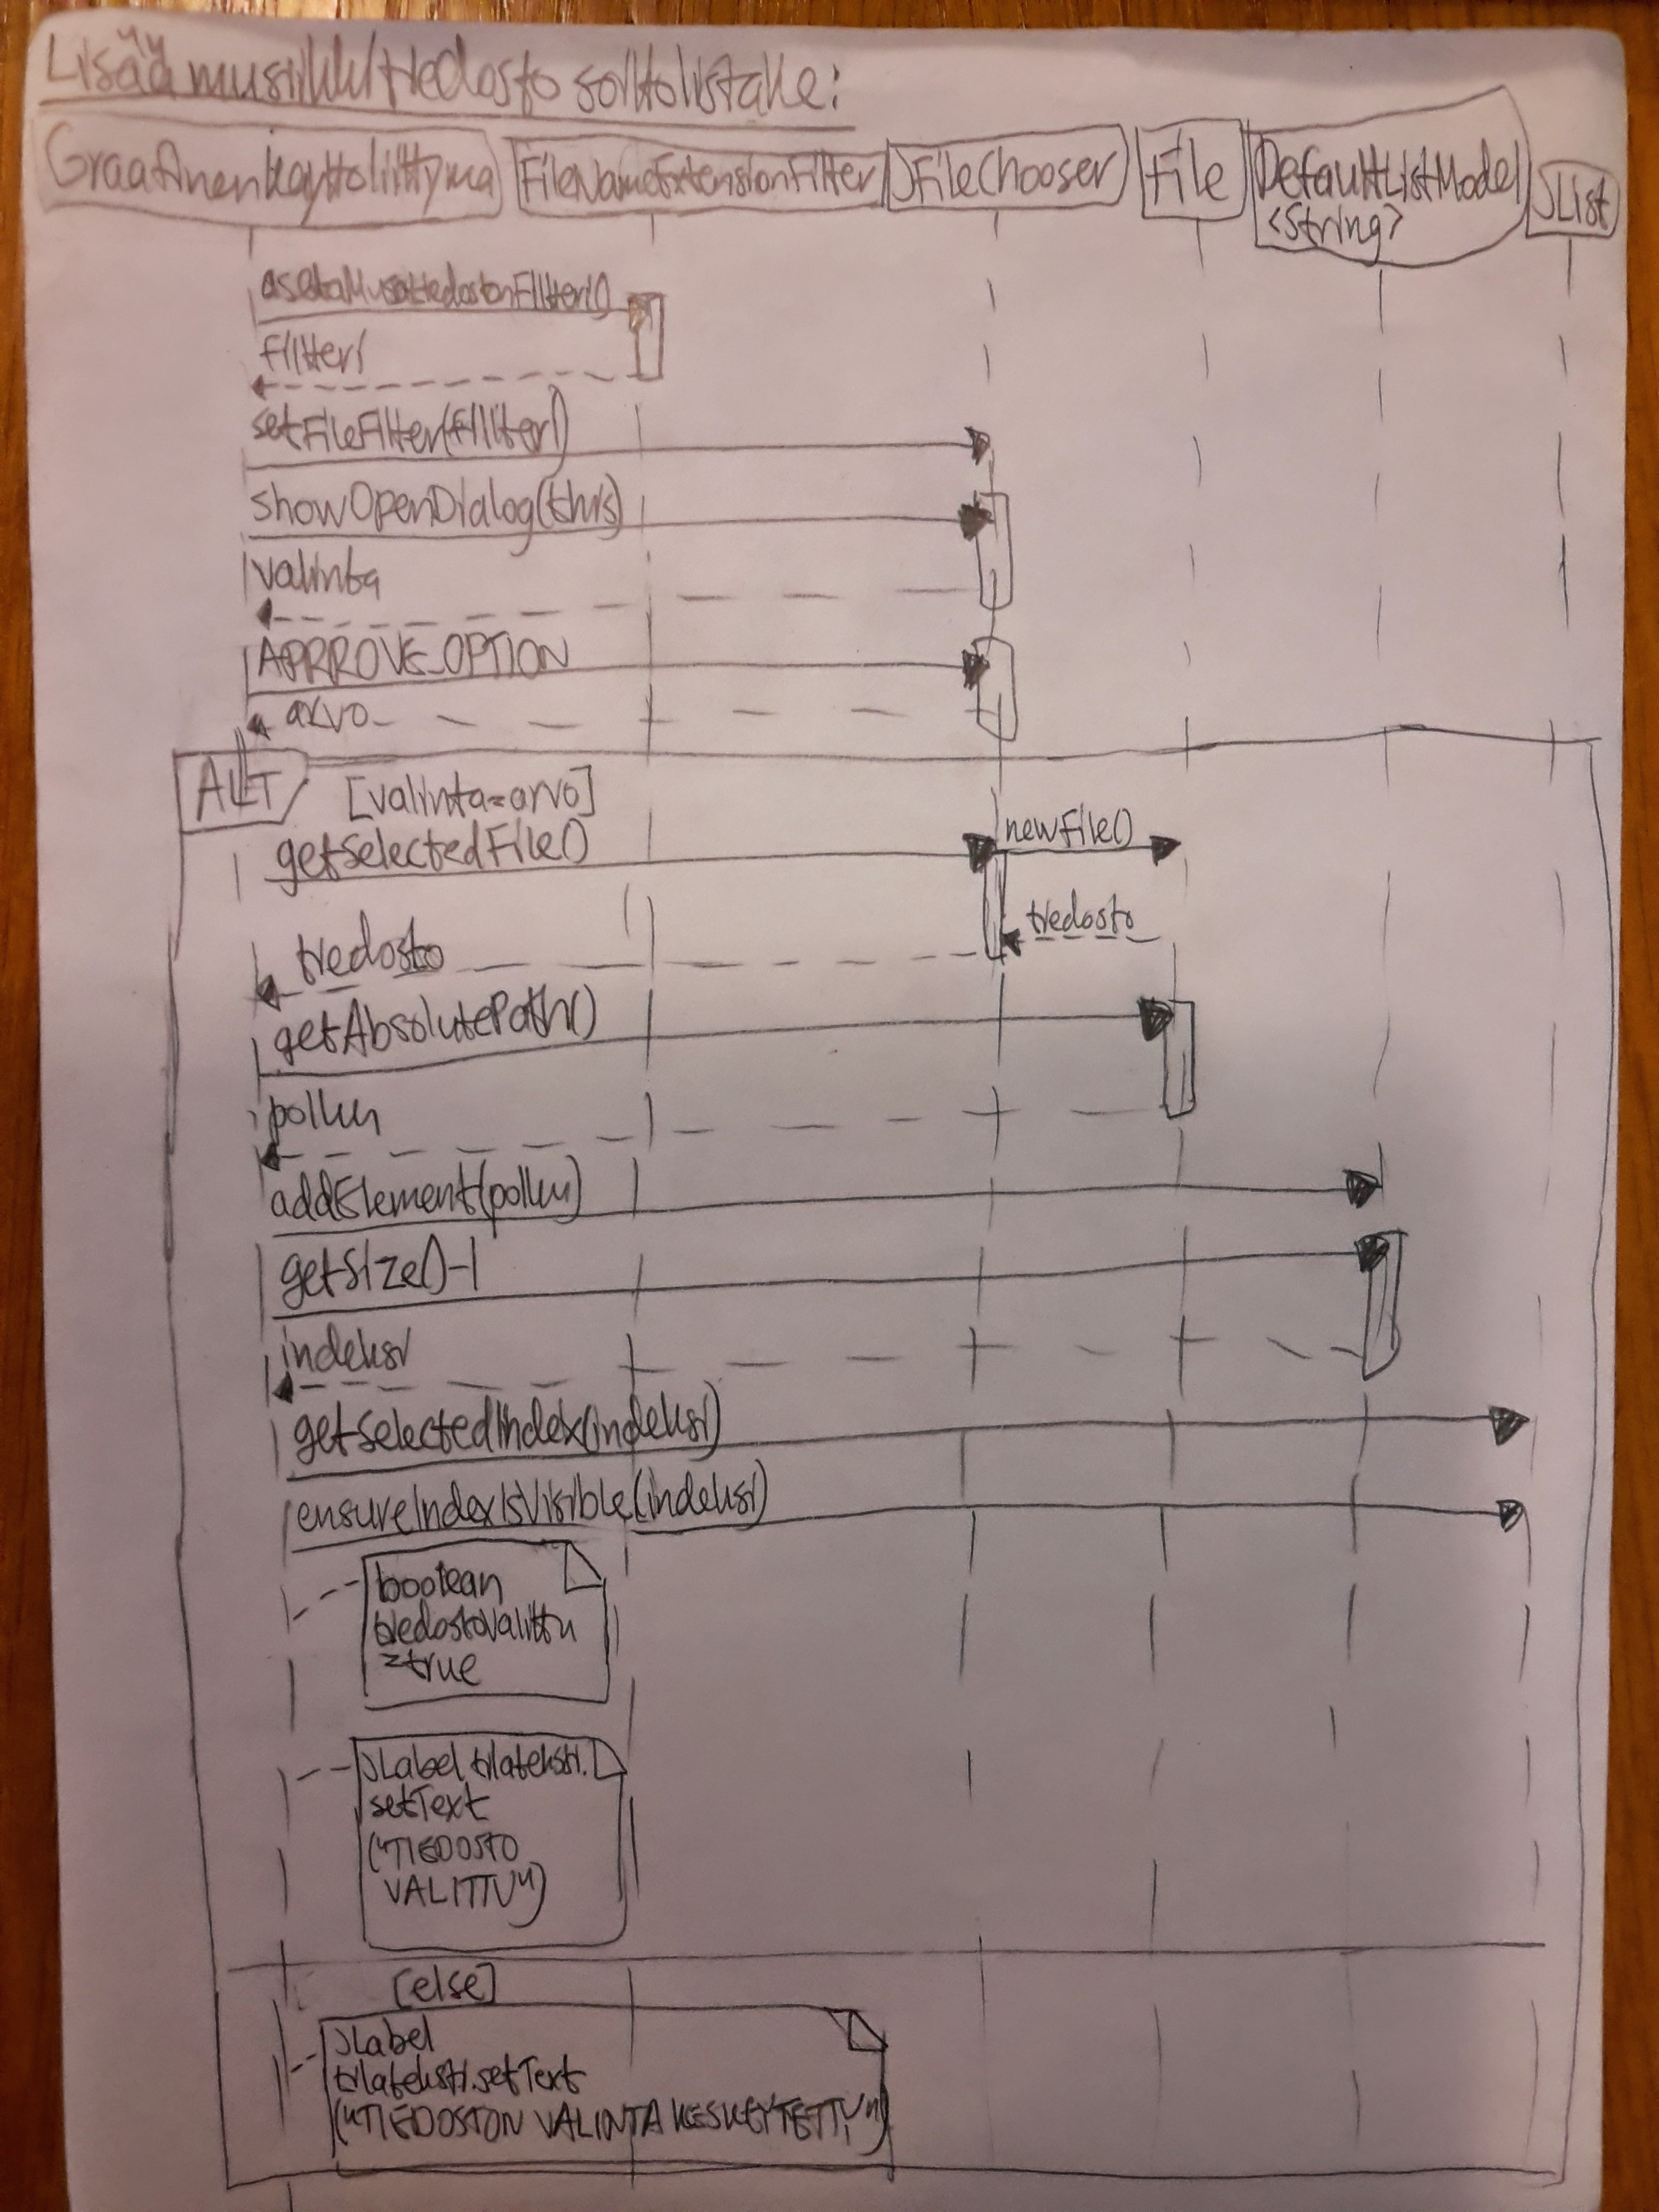 Lisää musiikkitiedosto soittolistalle:
GraafinenKayttoliittyma FileNameExtensionFilter JFileChooser File DefaultListModel JList
<String>
asetaMusatiedostonFiltteri()
filtteri
setFileFilter(filtteri)
showOpenDialog(this)
valinta
APRROVE_OPTION
arvo
ALT [valinta=arvo]
getSelectedFile() newFile()
tiedosto
tiedosto
getAbsolutePath()
polku
addElement(polku)
getSize()-1
indeksi
getSelectedIndex(indeksi)
ensureIndexIsVisible(indeksi)
boolean
tiedostoValittu
=true
JLabel tilateksti.
setText
("TIEDOSTO
VALITTU")
[else]
JLabel
tilateksti.setText
("TIEDOSTON VALINTA KESKEYTETTY")